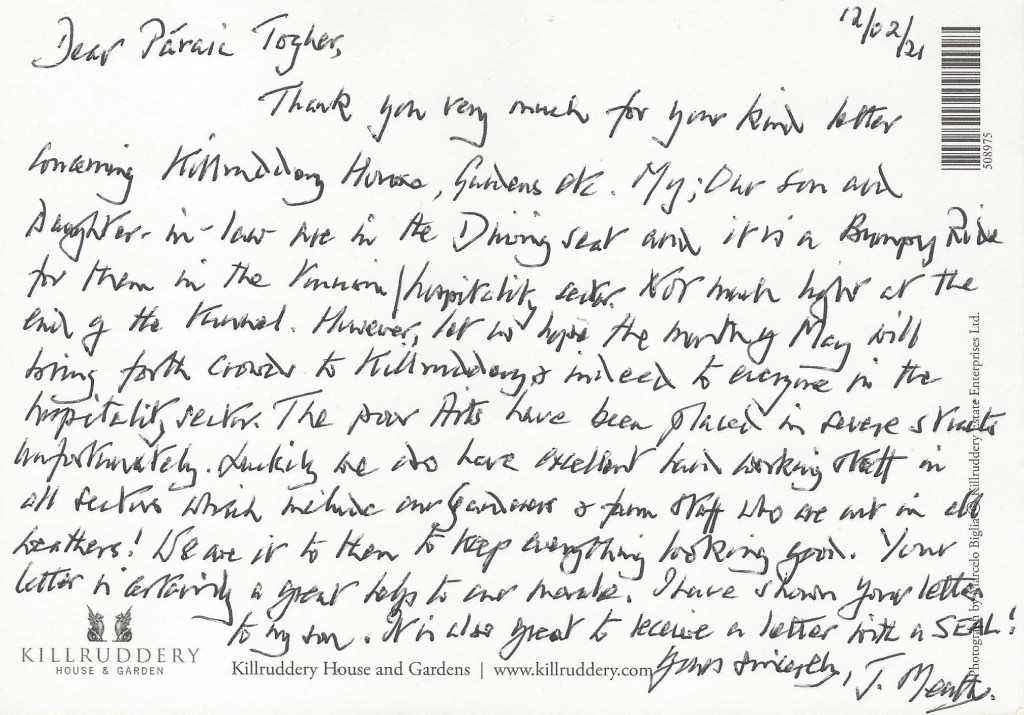 12/02/21
Dear Páraic Togher,
Thank you very much for your kind letter
concerning Killruddery House, Gardens etc. My; Our son and
Daughter-in-law are in the Driving seat and it is a Bumpy Ride
for them in the tourism/hospitality sector. Not much light at the
end of the tunnel. However, let us hope the month of May will
bring forth crowds to Killruddery & indeed to everyone in the
hospitality sector. The poor Arts have been placed in severe straits
unfortunately. Luckily we do have excellent hard working staff in
all sectors which include our Gardeners & farm staff who are out in all
weathers! We owe it to them to keep everything looking good. Your
letter is certainly a great help to our morale. I have shown your letter
to my son. It is also great to receive a letter with a SEAL!
Yours sincerely,
J. Meath.
KILLRUDDERY
HOUSE & GARDEN
Killruddery House and Gardens | www.killruddery.com
508975
Photograph by Marcelo Biglia © Killruddery Estate Enterprises Ltd.